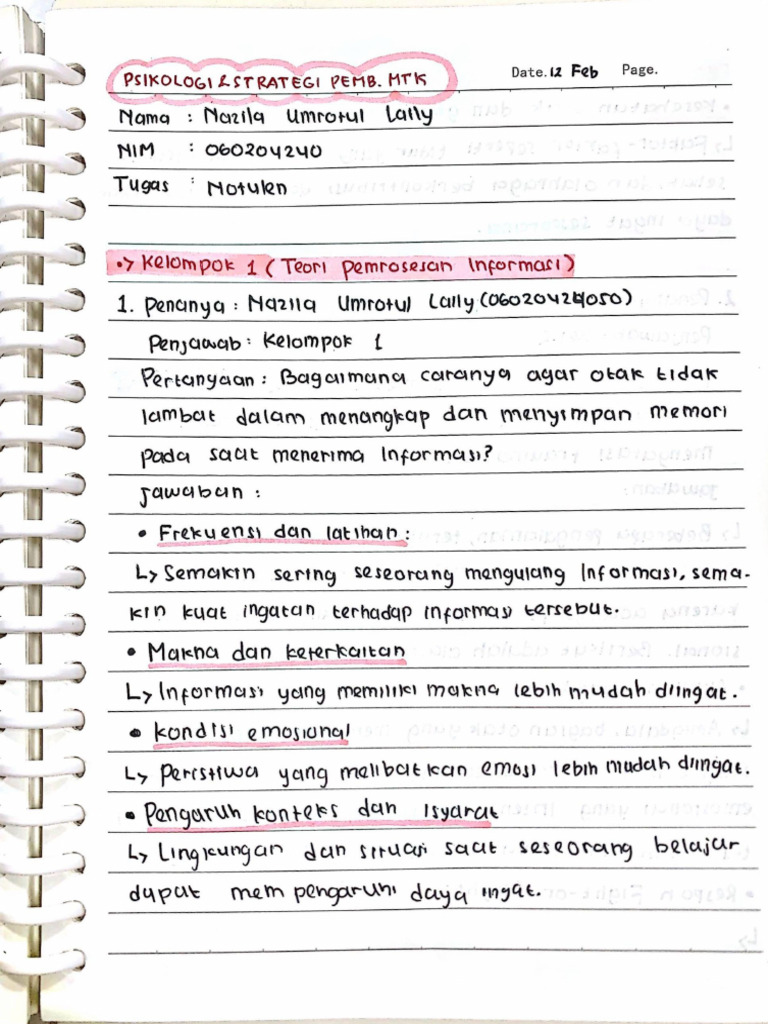 PSIKOLOGI & STRATEGI PEMB. MTK
Date. 12 Feb Page.
Nama : Nazila Umrotul Laily
NIM : 060204240
Tugas : Notulen
•> Kelompok 1 ( Teori Pemrosesan Informasi )
1. Penanya : Nazila Umrotul Laily (06020424050)
Penjawab : Kelompok 1
Pertanyaan : Bagaimana caranya agar otak tidak
lambat dalam menangkap dan menyimpan memori
pada saat menerima informasi?
Jawaban :
• Frekuensi dan latihan :
↳ Semakin sering seseorang mengulang informasi, sema-
kin kuat ingatan terhadap informasi tersebut.
• Makna dan keterkaitan
↳ Informasi yang memiliki makna lebih mudah diingat.
• Kondisi emosional
↳ Peristiwa yang melibatkan emosi lebih mudah diingat.
• Pengaruh konteks dan isyarat
↳ Lingkungan dan situasi saat seseorang belajar
dapat mempengaruhi daya ingat.